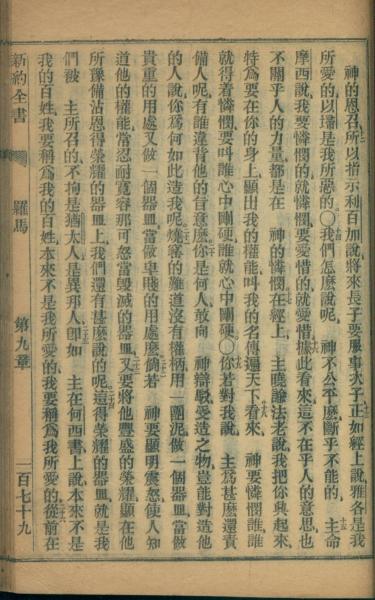 神的恩召所以指示利百加說將來長子要服事次子正如經上說雅各是我
所愛的以掃是我所惡的〇我們怎麽說呢 神不公平麽斷乎不能的 主命
摩西說我要憐憫的就憐憫要愛惜的就愛惜據此看來這不在乎人的意思也
不關乎人的力量都是在 神的憐憫在經上 主曉諭法老說我把你興起來
特爲要在你的身上顯出我的權能叫我的名傳遍天下看來 神要憐憫誰誰
就得着憐憫要叫誰心中剛硬誰就心中剛硬〇你若對我說 主爲甚麽還責
備人呢有誰違背他的旨意麽你是何人敢向 神辯駁受造之物豈能對造他
的人說你爲何如此造我呢燒窰的難道沒有權柄用一團泥做一個器皿當做
貴重的用處又做一個器皿當做卑賤的用處麽倘若 神要顯明震怒使人知
道他的權能常忍耐寬容那可怒當毀滅的器皿又要將他豐盛的榮耀顯在他
所豫備沾恩得榮耀的器皿上我們還有甚麽說的呢這得榮耀的器皿就是我
們被 主所召的不拘是猶太人是異邦人卽如 主在何西書上說本來不是
我的百姓我要稱爲我的百姓本來不是我所愛的我要稱爲我所愛的從前在
新約全書 羅馬 第九章 一百七十九